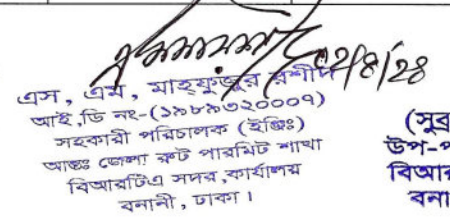 ০২/৪/২৪
এস, এম, মাহ্ফুজুর রশীদ
আই,ডি নং-(১৯৮৯৩২০০০৭)
সহকারী পরিচালক (ইঞ্জিঃ)
আন্তঃ জেলা রুট পারমিট শাখা
বিআরটিএ সদর ,কার্যালয়
বনানী , ঢাকা ।
(সুব্র
উপ-প
বিআর
বনা